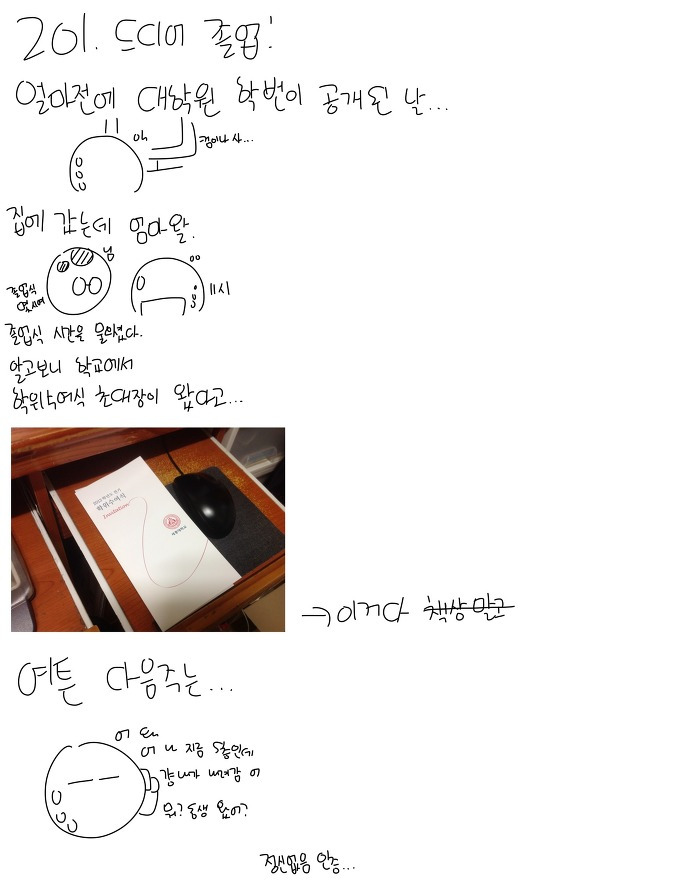 201. 드디어 졸업!
얼마전에 대학원 학번이 공개된 날...
집에 갔는데 엄마왈.
님
졸업식
몇시여
11시
졸업식 시간을 물으셨다.
알고보니 학교에서
학위수여식 초대장이 왔다고...
학위수여식
Invitation
→이거다 책상 말고
여튼 다음주는...
어 나 지금 5층인데
걍 내가 내려감 어
뭐? 동생 왔어?
정신없음 인증...